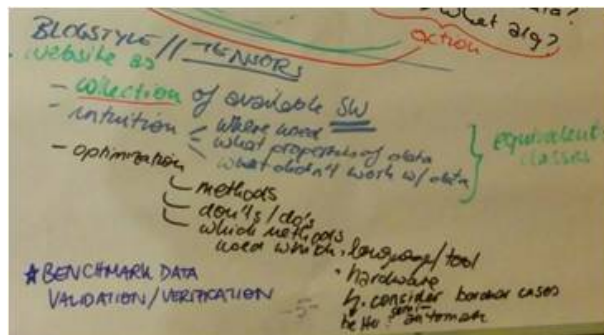 data?
what alg?
action
BLOGSTYLE // TENSORS
website as
- collection of available SW
- intuition - where used
- what properties of data
what didn't work w/ data
equivalent
classes
- optimization
methods
don'ts/do's
which methods
used which language/tool
• hardware
consider border cases
better semi-
automatic
* BENCHMARK DATA
VALIDATION/VERIFICATION
-5-